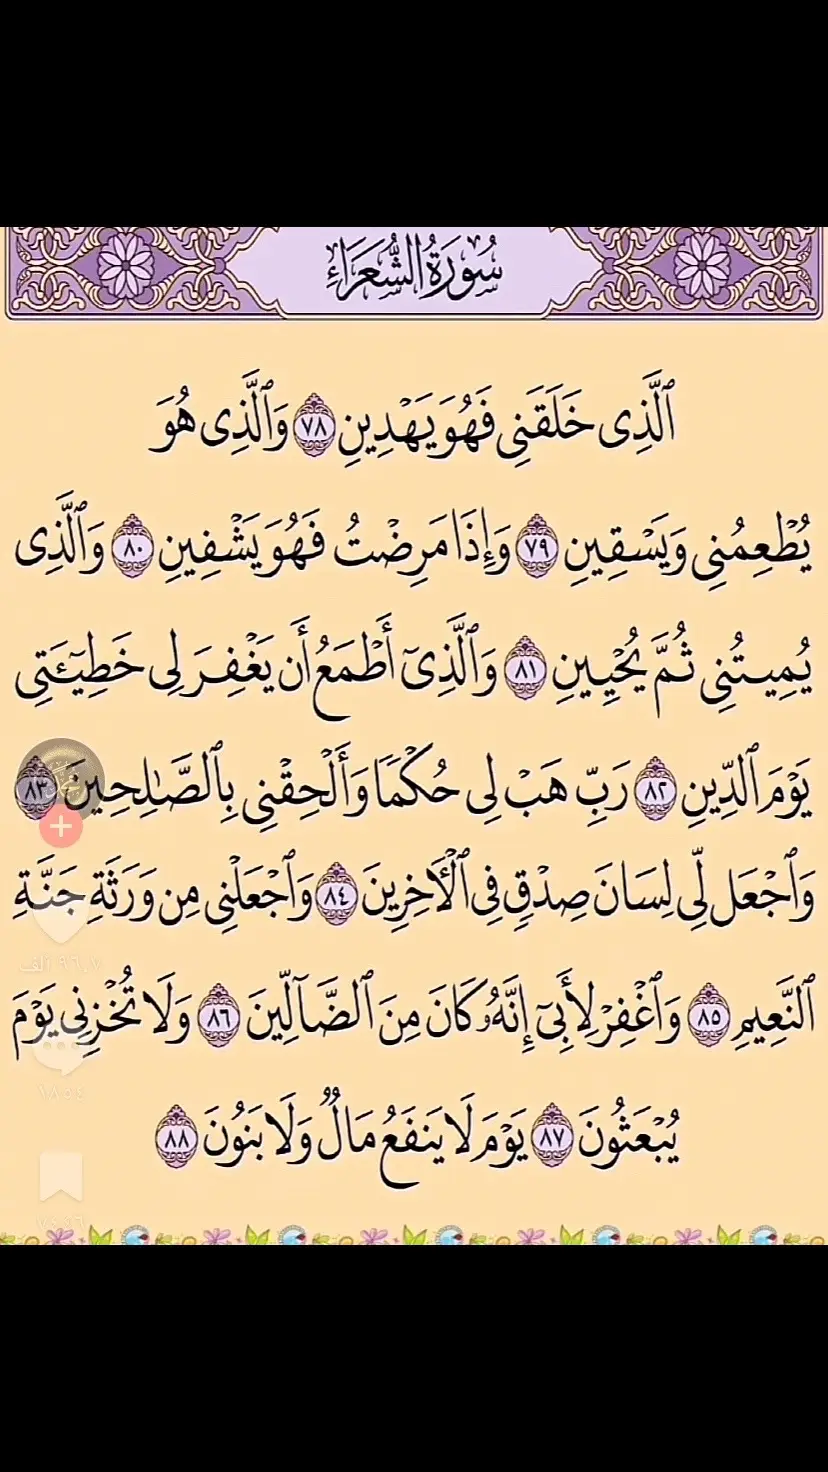 سُورَةُ الشُّعَرَاءِ
ٱلَّذِى خَلَقَنِى فَهُوَ يَهْدِينِ ٧٨ وَٱلَّذِى هُوَ
يُطْعِمُنِى وَيَسْقِينِ ٧٩ وَإِذَا مَرِضْتُ فَهُوَ يَشْفِينِ ٨٠ وَٱلَّذِى
يُمِيتُنِى ثُمَّ يُحْيِينِ ٨١ وَٱلَّذِىٓ أَطْمَعُ أَن يَغْفِرَ لِى خَطِيٓـَٔتِى
يَوْمَ ٱلدِّينِ ٨٢ رَبِّ هَبْ لِى حُكْمًا وَأَلْحِقْنِى بِٱلصَّـٰلِحِينَ ٨٣
وَٱجْعَل لِّى لِسَانَ صِدْقٍ فِى ٱلْأَخِرِينَ ٨٤ وَٱجْعَلْنِى مِن وَرَثَةِ جَنَّةِ
ٱلنَّعِيمِ ٨٥ وَٱغْفِرْ لِأَبِىٓ إِنَّهُۥ كَانَ مِنَ ٱلضَّآلِّينَ ٨٦ وَلَا تُخْزِنِى يَوْمَ
يُبْعَثُونَ ٨٧ يَوْمَ لَا يَنفَعُ مَالٌ وَلَا بَنُونَ ٨٨
٩٦٫٧ الف
١٨٥٤